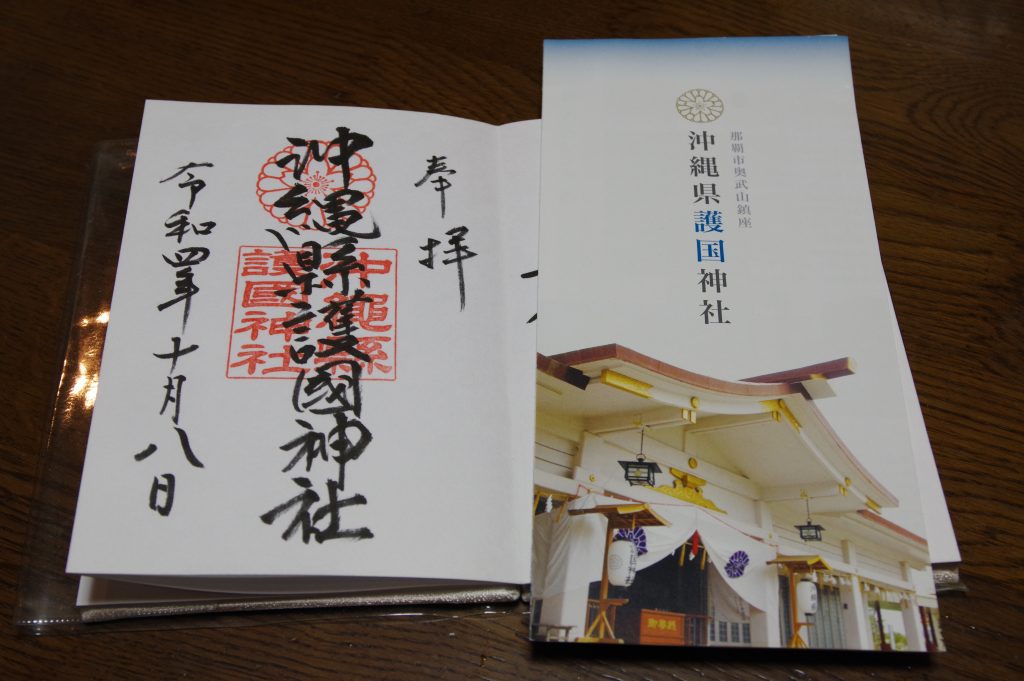 奉拝
沖縄縣護國神社
沖繩縣
護國神社
令和四年十月八日
那覇市奥武山鎮座
沖縄県護国神社